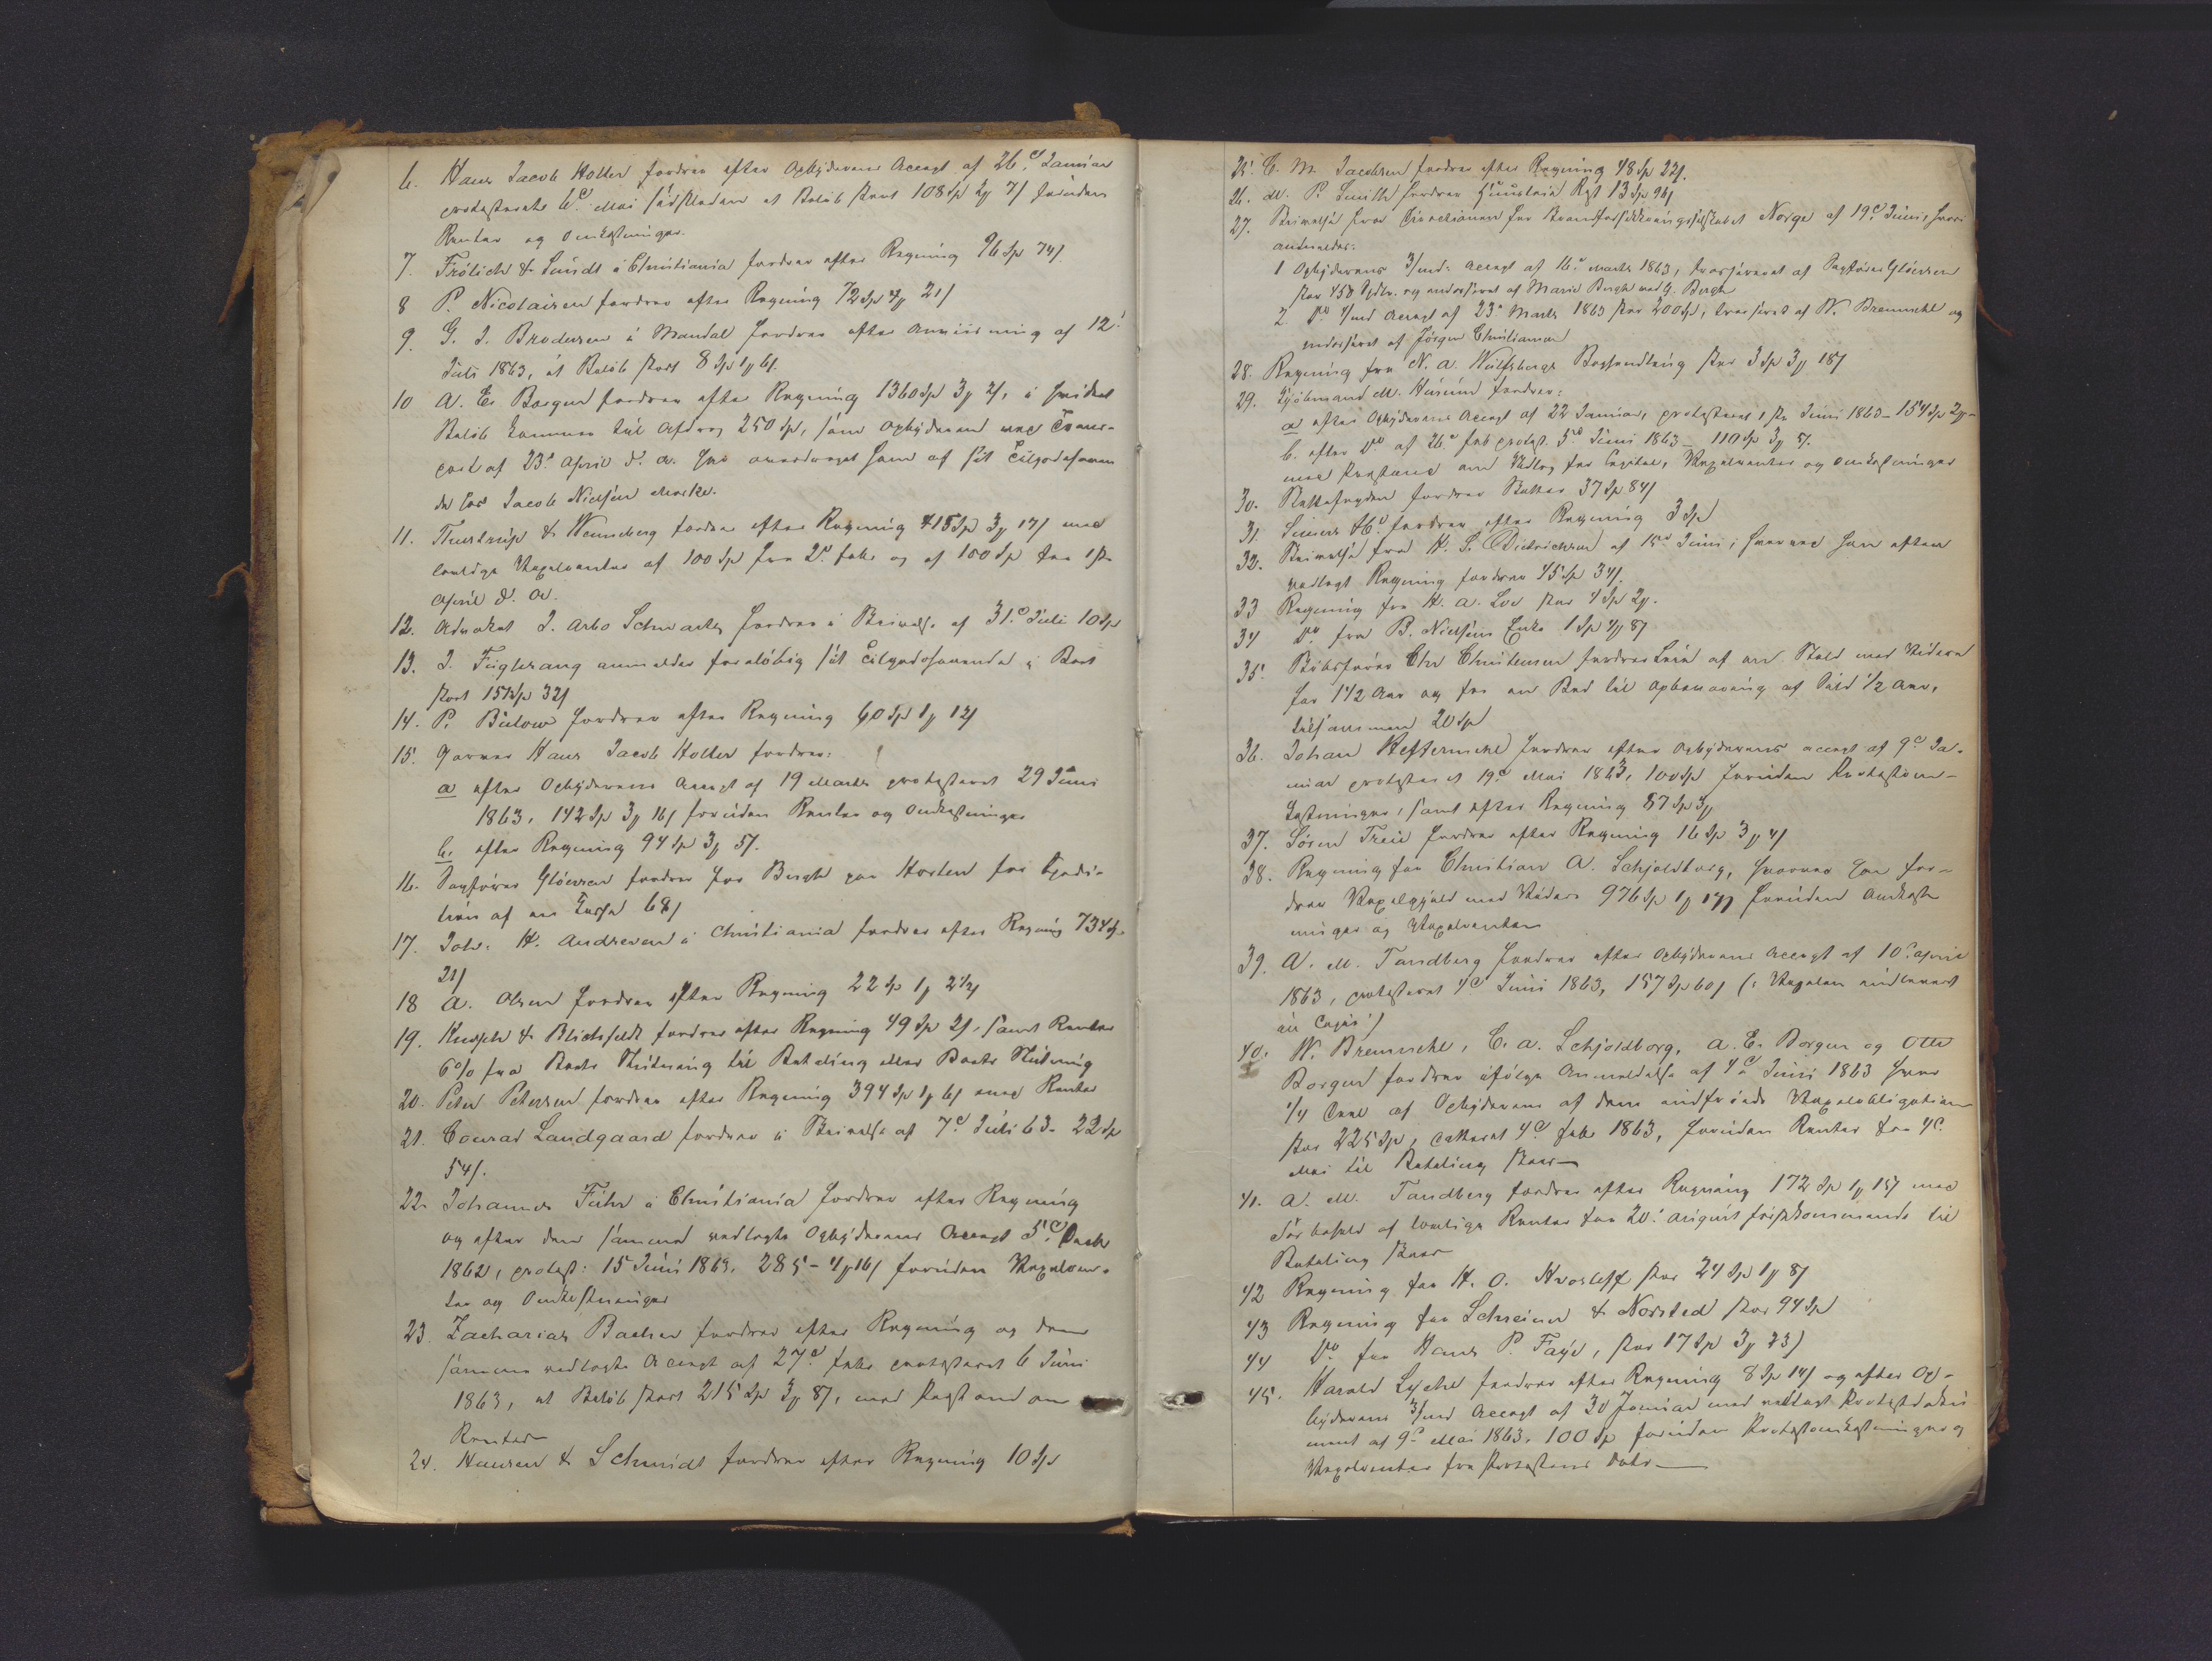 6. Hans Jacob Holler fordrer efter Opbyderens Accept af 26d Januar
protesterede 6d Mai sidstleden et Beløb stort 108 Sp 2 # 7 s foruden
Renter og Omkostninger.
7. Frölich & Sundt i Christiania fordrer efter Regning 96 Sp 74 s
8 P. Nicolaisen fordrer efter Regning 72 Sp 4 # 21 s
9. G. J. Brodersen i Mandal fordrer efter Anviisning af 12'
Juli 1863, et Beløb stort 8 Sp 1 # 6 s.
10 A. E. Borgen fordrer efter Regning 1360 Sp 3 # 2 s, i hvilket
Beløb kommer til Afdrag 250 Sp, som Opbyderen med Trans-
port af 23d April d. A. har overdraget ham af sit Tilgodehaven
de hos Jacob Nielsen
11. & Wenneberg fordrer efter Regning 415 Sp 3 # 17 s med
lovlige Vexelrenter af 100 Sp fra 2d Febr og af 150 Sp fra 1ste
April d. A.
12. Advokat J. Arbo Schwartz fordrer i Skrivelse af 31d Juli 10 Sp
13. J. anmelder foreløbig sit Tilgodehavende i Boet
stort 151 Sp 32 s
14. P. Bülow fordrer efter Regning 60 Sp 1 # 12 s
15. Garver Hans Jacob Holler fordrer:
a efter Opbyderens Accept af 19 Marts protesteret 29 Juni
1863, 142 Sp 3 # 16 s foruden Renter og Omkostninger
b. efter Regning 94 Sp 3 # 5 s.
16. Sagfører Gløersen fordrer for Bergh paa Horten for Expedi-
tion af en Kasse 68 s
17. Joh. H. Andresen i Christiania fordrer efter Regning 734 Sp
21 s
18 A. Olsen fordrer efter Regning 22 Sp 1 # 2½ s
19. & Blichfeldt fordrer efter Regning 49 Sp 2 s, samt Renter
6% fra Boets Slutning til Betaling eller Boets Slutning
20. Peter Petersen fordrer efter Regning 394 Sp 1 # 6 s med Renter
21. Conrad Landgaard fordrer i Skrivelse af 7d Juli 63. 22 Sp
54 s.
22. Johannes i Christiania fordrer efter Regning
og efter den samme vedlagte Opbyderens Accept 5d Decbr
1862, protest: 15 Juni 1863. 285 - 4 # 16 s foruden Vexelren-
ter og Omkostninger
23. Zacharias Backer fordrer efter Regning og den
samme vedlagte Accept af 27d Febr protesteret 6 Juni
1863, et Beløb stort 215 Sp 3 # 8 s, med Paastand om
Renter
24. Hansen & Schmidt fordrer efter Regning 10 Sp
25. C. M. Jacobsen fordrer efter Regning 48 Sp 22 s.
26. M. P. Smith fordrer Huusleie 13 Sp 96 s
27. Skrivelse fra Directionen for Brandforsikkringsselskabet Norge af 19d Juni, hvori
anmeldes:
1 Opbyderens 3/md: Accept af 16d Marts 1863, trasseret af Sagfører Gløersen
stor 450 Spdlr. og endosseret af Marie Bergh ved G. Bergh
2 Do 4/md Accept af 23d Marts 1863 stor 200 Sp, trasseret af W. Bremuchl og
endosseret af Jörgen Christiansen
28. Regning fra N. A. Wulfsbergs Boghandling stor 3 Sp 3 # 18 s
29. Kjøbmand M. fordrer:
a efter Opbyderens Accept af 22 Januar, protesteret 1ste Juni 1863 – 154 Sp 2 # –
b. efter Do af 26d Feb protest. 5d Juni 1863 – 110 Sp 3 # 5 s.
med Paastand om Udlæg for Capital, Vexelrenter og Omkostninger
30. Skattefogden fordrer Skatter 37 Sp 84 s
31. Siewers & Co. fordrer efter Regning 3 Sp
32. Skrivelse fra H. S. Dietrichsen af 15d Juni, hvorved han efter
vedlagt Regning fordrer 45 Sp 34 s.
33 Regning fra H. A. Lie stor 4 Sp 2 #.
34 Do fra B. Nielsens Enke 1 Sp 4 # 8 s
35. Skibsfører Chr Christensen fordrer Leie af en Stald med Videre
for 1 1/2 Aar og for en Bod til Opbevaring af Sild 1/2 Aar,
tilsammen 20 Sp
36. Johan fordrer efter Opbyderens Accept af 9d Ja-
nuar protesteret 19d Mai 1863, 100 Sp foruden Protestom-
kostninger, samt efter Regning 87 Sp 3 #
37. Sören Treu fordrer efter Regning 16 Sp 3 # 4 s
38. Regning fra Christian A. Schjoldborg, hvorved han for-
drer Vexelgjæld med Videre 976 Sp 1 # 17 s foruden Omkost-
ninger og Vexelrenter
39. A. M. Tandberg fordrer efter Opbyderens Accept af 10d April
1863, protesteret 4d Juni 1863, 157 Sp 60 s (: Vexelen indleveret
in Copia:)
40. W. Bremuchl, C. A. Schjoldborg, A. E. Borgen og Otto
Borgen fordrer ifølge Anmeldelse af 4d Juni 1863 hver
1/4 Deel af Opbyderens af dem indfriede Vexelobligation
stor 225 Sp, dateret 4d Febr 1863, foruden Renter fra 4d
Mai til Betaling skeer –
41. A. M. Tandberg fordrer efter Regning 172 Sp 1 # 15 s med
Forbehold af lovlige Renter fra 20' August førstkommende til
Betaling skeer
42 Regning fra H. O. Hvosleff stor 24 Sp 1 # 8 s
43 Regning fra Schreiner & Norsted stor 94 Sp
44 Do fra Hans P. Faye, stor 17 Sp 3 # 23 s
45. Harald Lyche fordrer efter Regning 8 Sp 14 s og efter Op-
byderens 3/md Accept af 30 Januar med vedlagt Protestdoku-
ment af 9d Mai 1863. 100 Sp foruden Protestomkostninger og
Vexelrenter fra Protestens Dato –